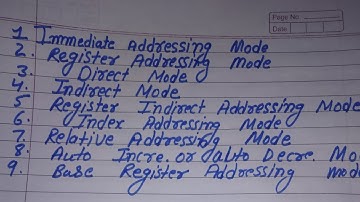 Page No.
Date
1. Immediate Addressing Mode
2. Register Addressing mode
3. Direct Mode
4. Indirect Mode
5. Register Indirect Addressing Mode
6. Index Addressing Mode
7. Relative Addressing Mode
8. Auto Incre. or Auto Decre. Mo
9. Base Register Addressing mod